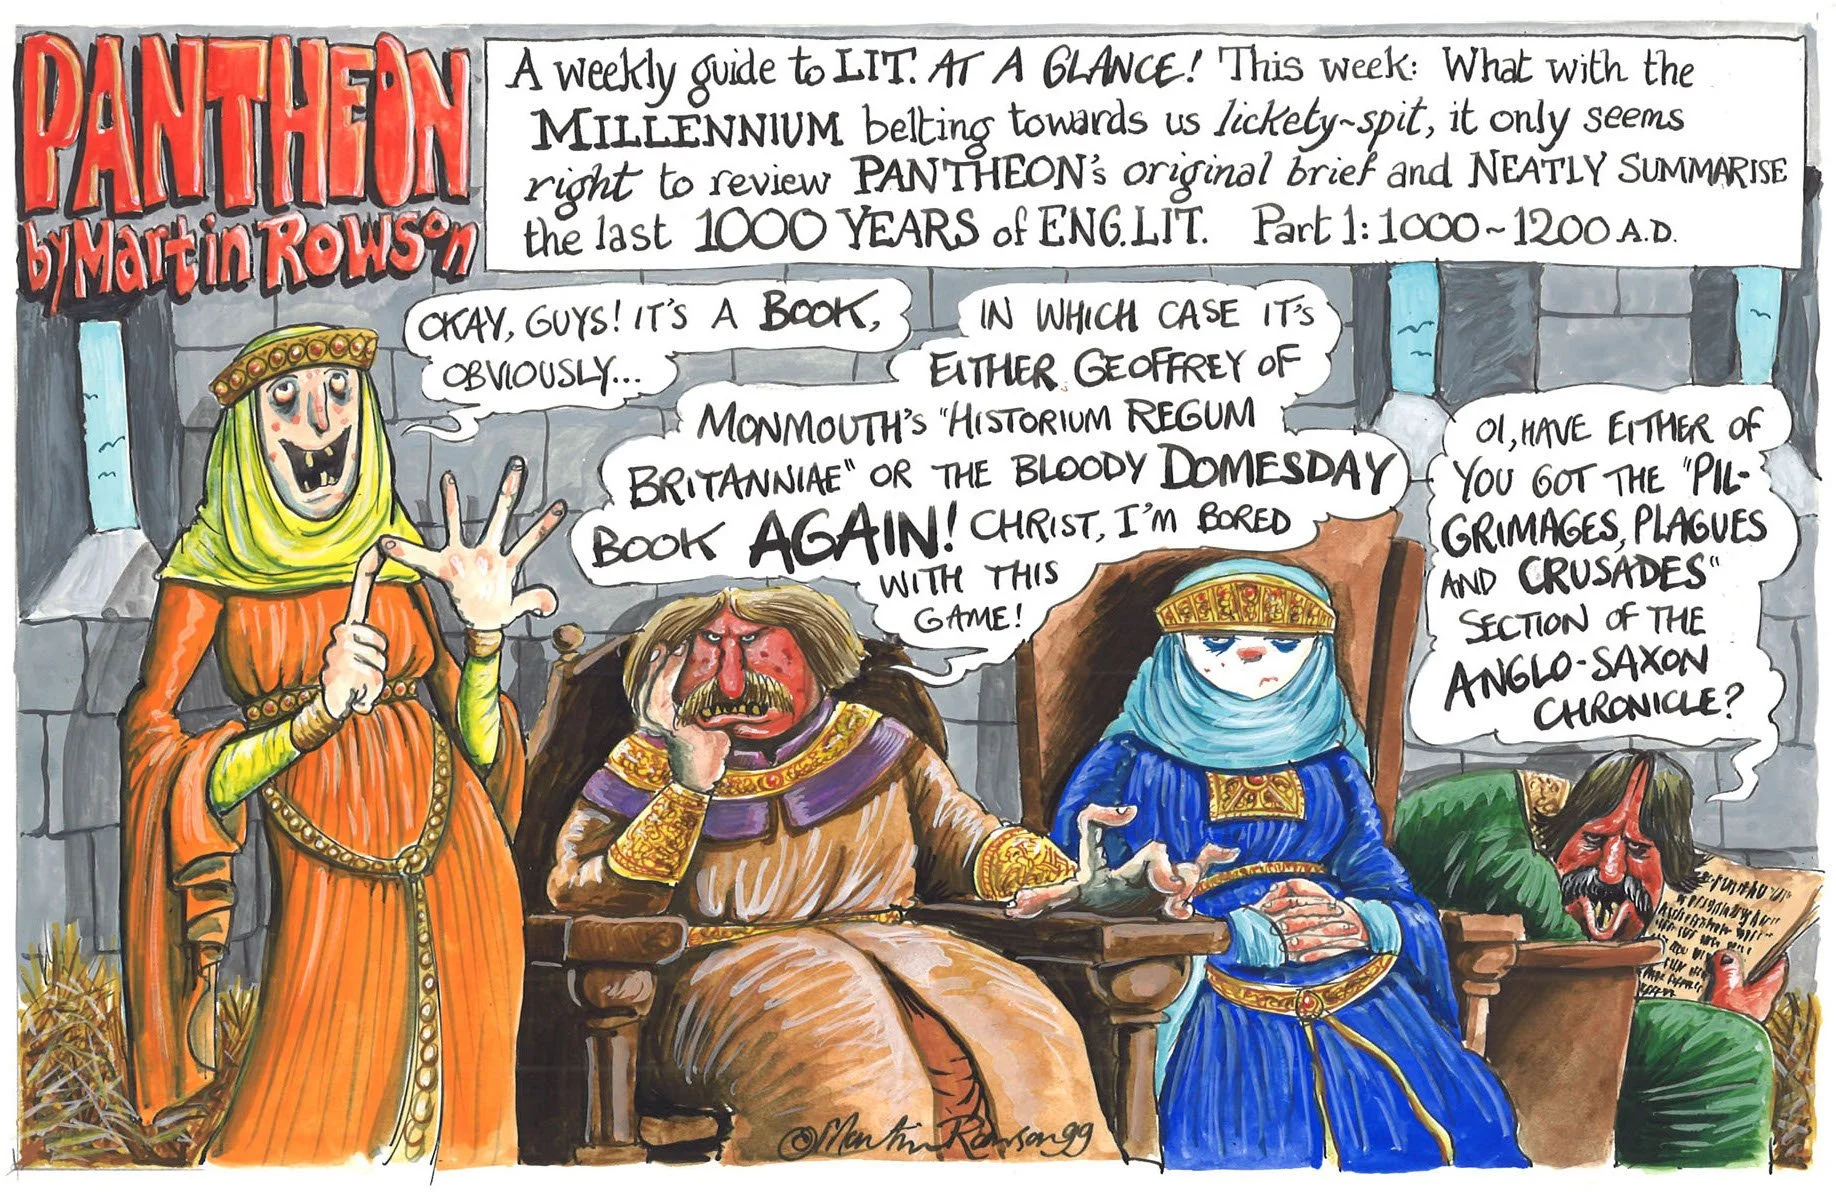 PANTHEON
by Martin Rowson
A weekly guide to LIT. AT A GLANCE! This week: What with the
MILLENNIUM belting towards us lickety-spit, it only seems
right to review PANTHEON's original brief and NEATLY SUMMARISE
the last 1000 YEARS of ENG.LIT. Part 1: 1000~1200 A.D.
OKAY, GUYS! IT'S A BOOK,
OBVIOUSLY...
IN WHICH CASE IT'S
EITHER GEOFFREY OF
MONMOUTH'S "HISTORIUM REGUM
BRITANNIAE" OR THE BLOODY DOMESDAY
BOOK AGAIN! CHRIST, I'M BORED
WITH THIS
GAME!
OI, HAVE EITHER OF
YOU GOT THE "PIL-
GRIMAGES, PLAGUES
AND CRUSADES"
SECTION OF THE
ANGLO-SAXON
CHRONICLE?
©Martin Rowson 99